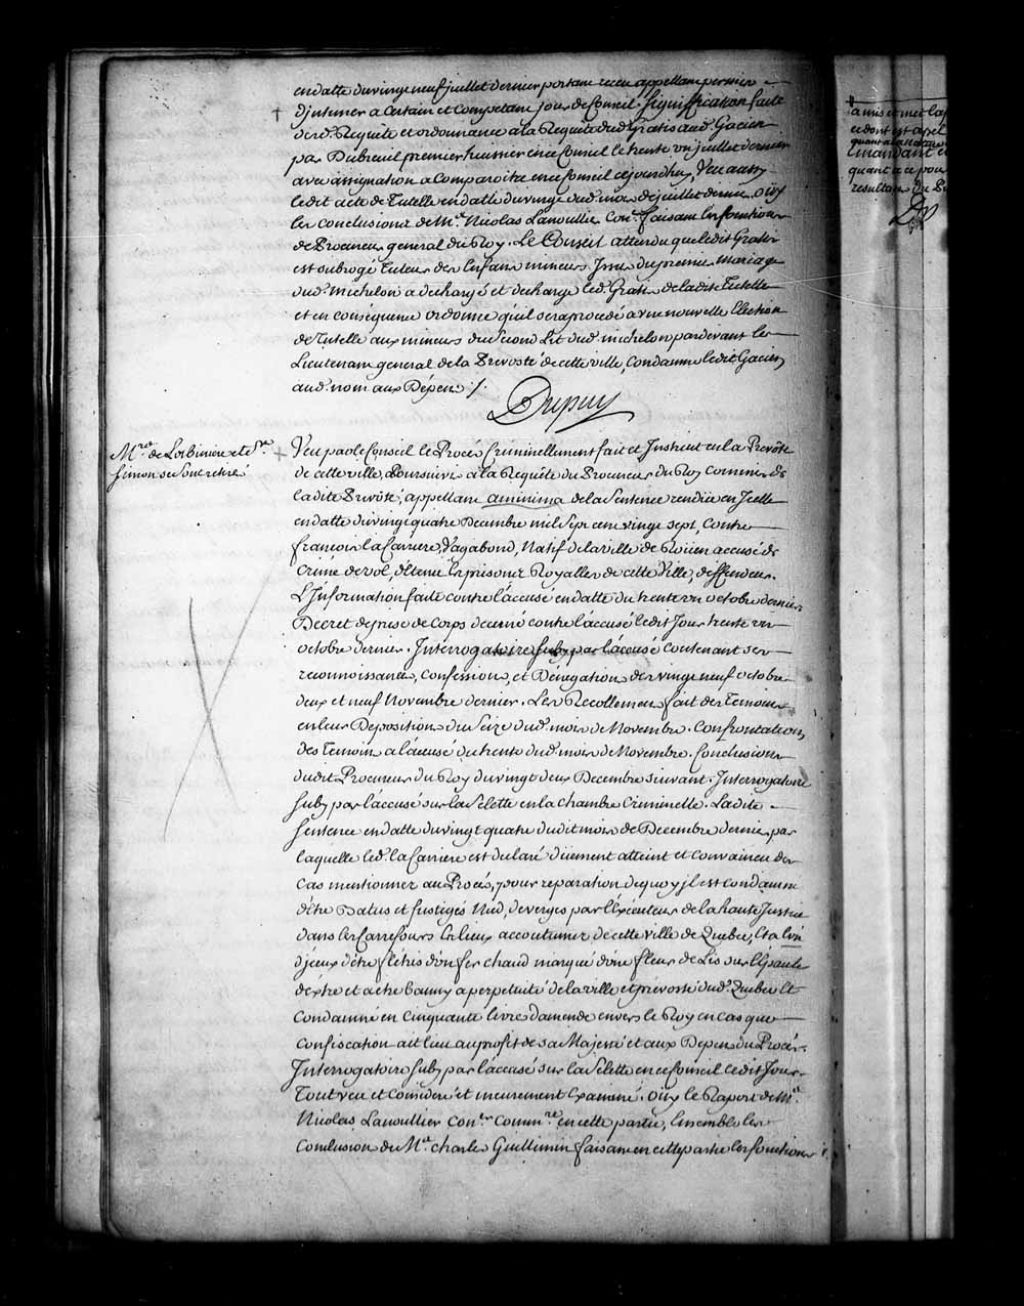 en datte du vingt neuf juillet dernier portant receu appellant permis
d'jntimer a certain et competant jour de Conseil. Signiffication faite
desd. Requête et ordonnance a la Requête dud. Gratis aud. Gacien
par Dubreuil premier huissier en ce Conseil le trente un juillet dernier
avec assignation a Comparoitre en ce Conseil cejourdhuy, Veu aussy
ledit acte de Tutelle en datte du vingt dud. mois de juillet dernier, oüy
les conclusions de Me. Nicolas Lanoullier Conr. faisant les fonctions
de Procureur general du Roy. Le Conseil attendu que ledit Gratis
est subrogé Tuteur des Enfans mineurs Jssus du premier mariage
dud. Michelon a dechargé et decharge led. Gratis de ladite Tutelle
et en consequence ordonne qu'il sera procedé a une nouvelle Election
de Tutelle aux mineurs du second Lit dud. michelon pardevant le
Lieutenant general de la Prevosté de cette ville, Condamne ledit Gacien
aud. nom aux Dépens /.
Dupuy
Mrs. de Lotbiniere et Sr.
Simon se sont retiré
Veu par le Conseil le Procés Criminellement fait et Jnstruit en la Prevôté
de cette ville, Poursuivi a la Requête du Procureur du Roy commis de
ladite Prevôté, appellant aminima de la Sentence rendüe en Jcelle
en datte du vingt quatre Decembre mil sept cent vingt sept, Contre
francois la Carriere, Vagabond, Natif de la ville de Roüen accusé de
Crime de vol, détenu es prisons Royalles de cette Ville, déffendeur.
L'Jnformation faite contre l'accusé en datte du trente un octobre dernier
Decret de prise de Corps decerné contre l'accusé ledit Jour trente un
octobre dernier. Jnterrogatoire suby par l'accusé contenant ses
reconnoissances, confessions, et Dénegations des vingt neuf octobre
deux et neuf Novembre dernier. Les Recollemens fait des Temoins
en leur Deposition du Seize dud. mois de Novembre. Confrontation
des Temoins a l'accusé du trente dud. mois de Novembre. Conclusions
dudit Procureur du Roy du vingt deux Decembre suivant. Jnterrogatoire
suby par l'accusé sur la Selette en la chambre Criminelle. Ladite
Sentence en datte du vingt quatre dudit mois de Decembre dernier, par
laquelle led. la Carriere est declaré düement atteint et convaincu des
Cas mentionnez au Procés, pour reparation dequoy jl est condamné
d'être Batus et fustigés Nud, de verges par l'Exécuteur de la haute Justice
dans les Carrefours et lieux accoutumez de cette ville de Quebec, Et a l'un
d'jceux d'être flétris d'un fer chaud marqué d'une fleur de Lis sur l'Epaule
dextre et a être banny a perpetuité de la ville et prevosté dud. Quebec Et
Condamné en Cinquante livres d'amende envers le Roy en cas que
Confiscation ait lieu au profit de sa Majesté et aux Dépens du Procés.
Jnterrogatoire suby par l'accusé sur la Selette en ce Conseil cedit Jour
Tout veu et considéré et meurement Examiné. Oüy le Raport de Me.
Nicolas Lanoullier Conr. Commre. en cette partie, Ensemble les
Conclusion de Me. Charles Guillimin faisant en cette partie les fonctions